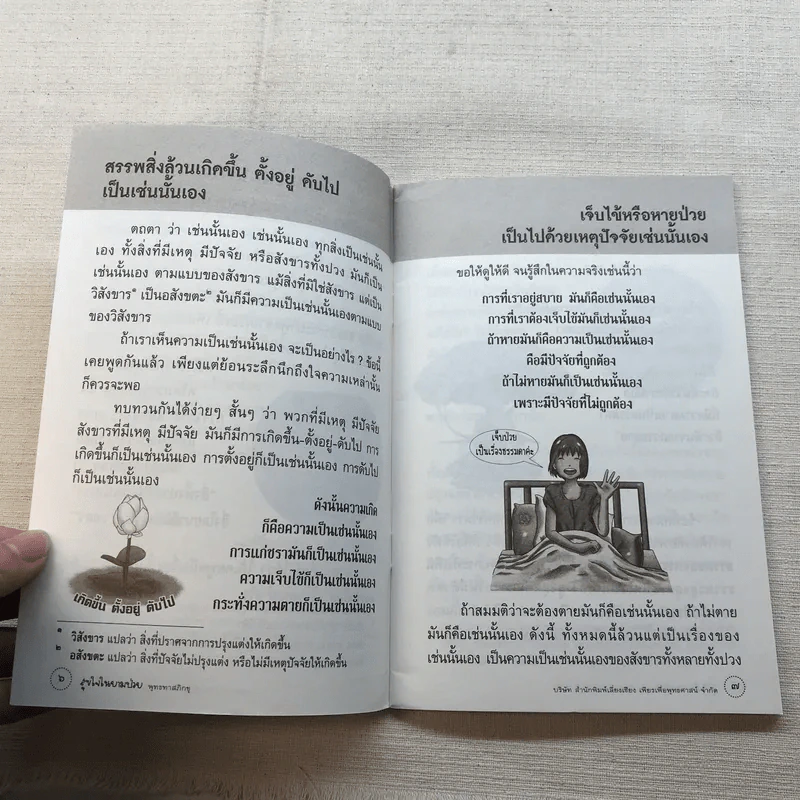 สรรพสิ่งล้วนเกิดขึ้น ตั้งอยู่ ดับไป
เป็นเช่นนั้นเอง
ตถตา ว่า เช่นนั้นเอง เช่นนั้นเอง ทุกสิ่งเป็นเช่นนั้น
เอง ทั้งสิ่งที่มีเหตุ มีปัจจัย หรือสังขารทั้งปวง มันก็เป็น
เช่นนั้นเอง ตามแบบของสังขาร แม้สิ่งที่มิใช่สังขาร แต่เป็น
วิสังขาร๑ เป็นอสังขตะ๒ มันก็มีความเป็นเช่นนั้นเองตามแบบ
ของวิสังขาร
ถ้าเราเห็นความเป็นเช่นนั้นเอง จะเป็นอย่างไร ? ข้อนี้
เคยพูดกันแล้ว เพียงแต่ย้อนระลึกนึกถึงใจความเหล่านั้น
ก็ควรจะพอ
ทบทวนกันได้ง่ายๆ สั้นๆ ว่า พวกที่มีเหตุ มีปัจจัย
สังขารที่มีเหตุ มีปัจจัย มันก็มีการเกิดขึ้น-ตั้งอยู่-ดับไป การ
เกิดขึ้นก็เป็นเช่นนั้นเอง การตั้งอยู่ก็เป็นเช่นนั้นเอง การดับไป
ก็เป็นเช่นนั้นเอง
ดังนั้นความเกิด
ก็คือความเป็นเช่นนั้นเอง
การแก่ชรามันก็เป็นเช่นนั้นเอง
ความเจ็บไข้ก็เป็นเช่นนั้นเอง
กระทั่งความตายก็เป็นเช่นนั้นเอง
เกิดขึ้น ตั้งอยู่ ดับไป
๑ วิสังขาร แปลว่า สิ่งที่ปราศจากการปรุงแต่งให้เกิดขึ้น
๒ อสังขตะ แปลว่า สิ่งที่ปัจจัยไม่ปรุงแต่ง หรือไม่มีเหตุปัจจัยให้เกิดขึ้น
๖ สุขใจในยามป่วย พุทธทาสภิกขุ
เจ็บไข้หรือหายป่วย
เป็นไปด้วยเหตุปัจจัยเช่นนั้นเอง
ขอให้ดูให้ดี จนรู้สึกในความจริงเช่นนี้ว่า
การที่เราอยู่สบาย มันก็คือเช่นนั้นเอง
การที่เราต้องเจ็บไข้มันก็เป็นเช่นนั้นเอง
ถ้าหายมันก็คือความเป็นเช่นนั้นเอง
คือมีปัจจัยที่ถูกต้อง
ถ้าไม่หายมันก็เป็นเช่นนั้นเอง
เพราะมีปัจจัยที่ไม่ถูกต้อง
เจ็บป่วย
เป็นเรื่องธรรมดาค่ะ
ถ้าสมมติว่าจะต้องตายมันก็คือเช่นนั้นเอง ถ้าไม่ตาย
มันก็คือเช่นนั้นเอง ดังนี้ ทั้งหมดนี้ล้วนแต่เป็นเรื่องของ
เช่นนั้นเอง เป็นความเป็นเช่นนั้นเองของสังขารทั้งหลายทั้งปวง
บริษัท สำนักพิมพ์เลี่ยงเชียง เพียรเพื่อพุทธศาสน์ จำกัด ๗